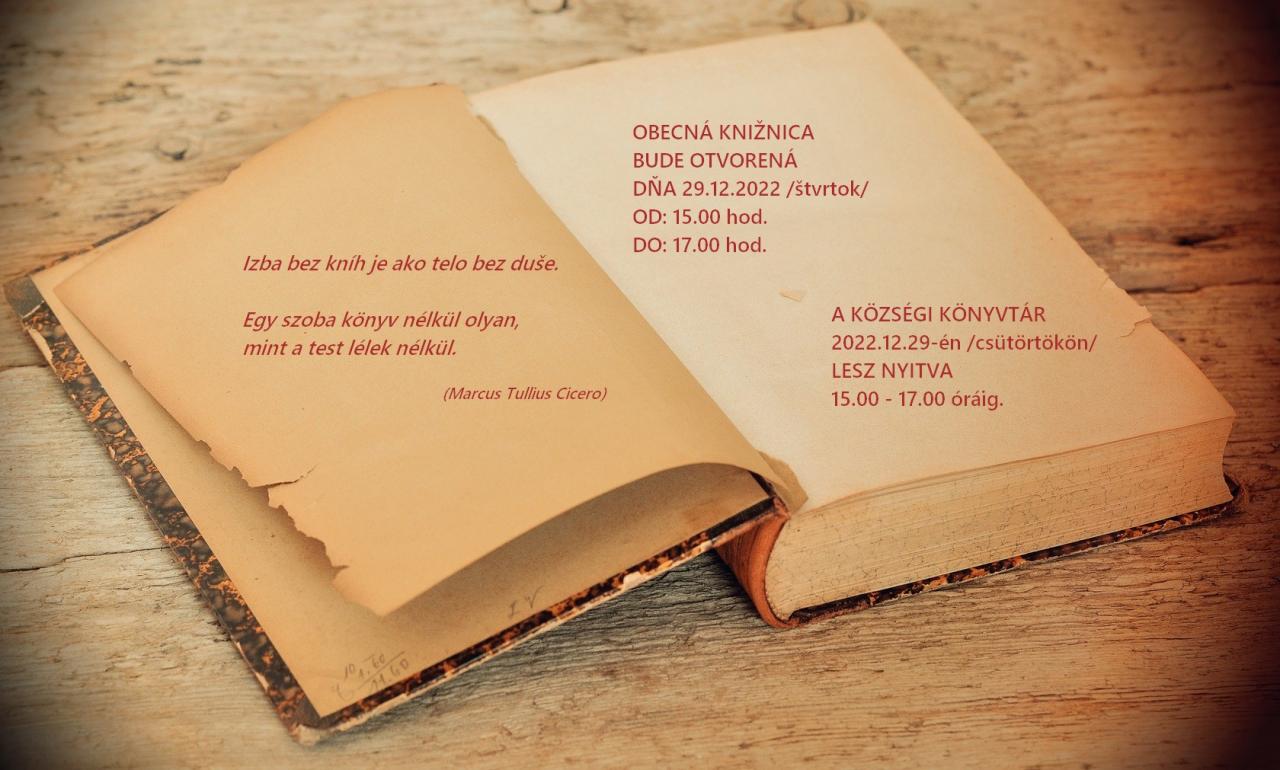 Izba bez kníh je ako telo bez duše.
Egy szoba könyv nélkül olyan,
mint a test lélek nélkül.
(Marcus Tullius Cicero)
OBECNÁ KNIŽNICA
BUDE OTVORENÁ
DŇA 29.12.2022 /štvrtok/
OD: 15.00 hod.
DO: 17.00 hod.
A KÖZSÉGI KÖNYVTÁR
2022.12.29-én /csütörtökön/
LESZ NYITVA
15.00 - 17.00 óráig.